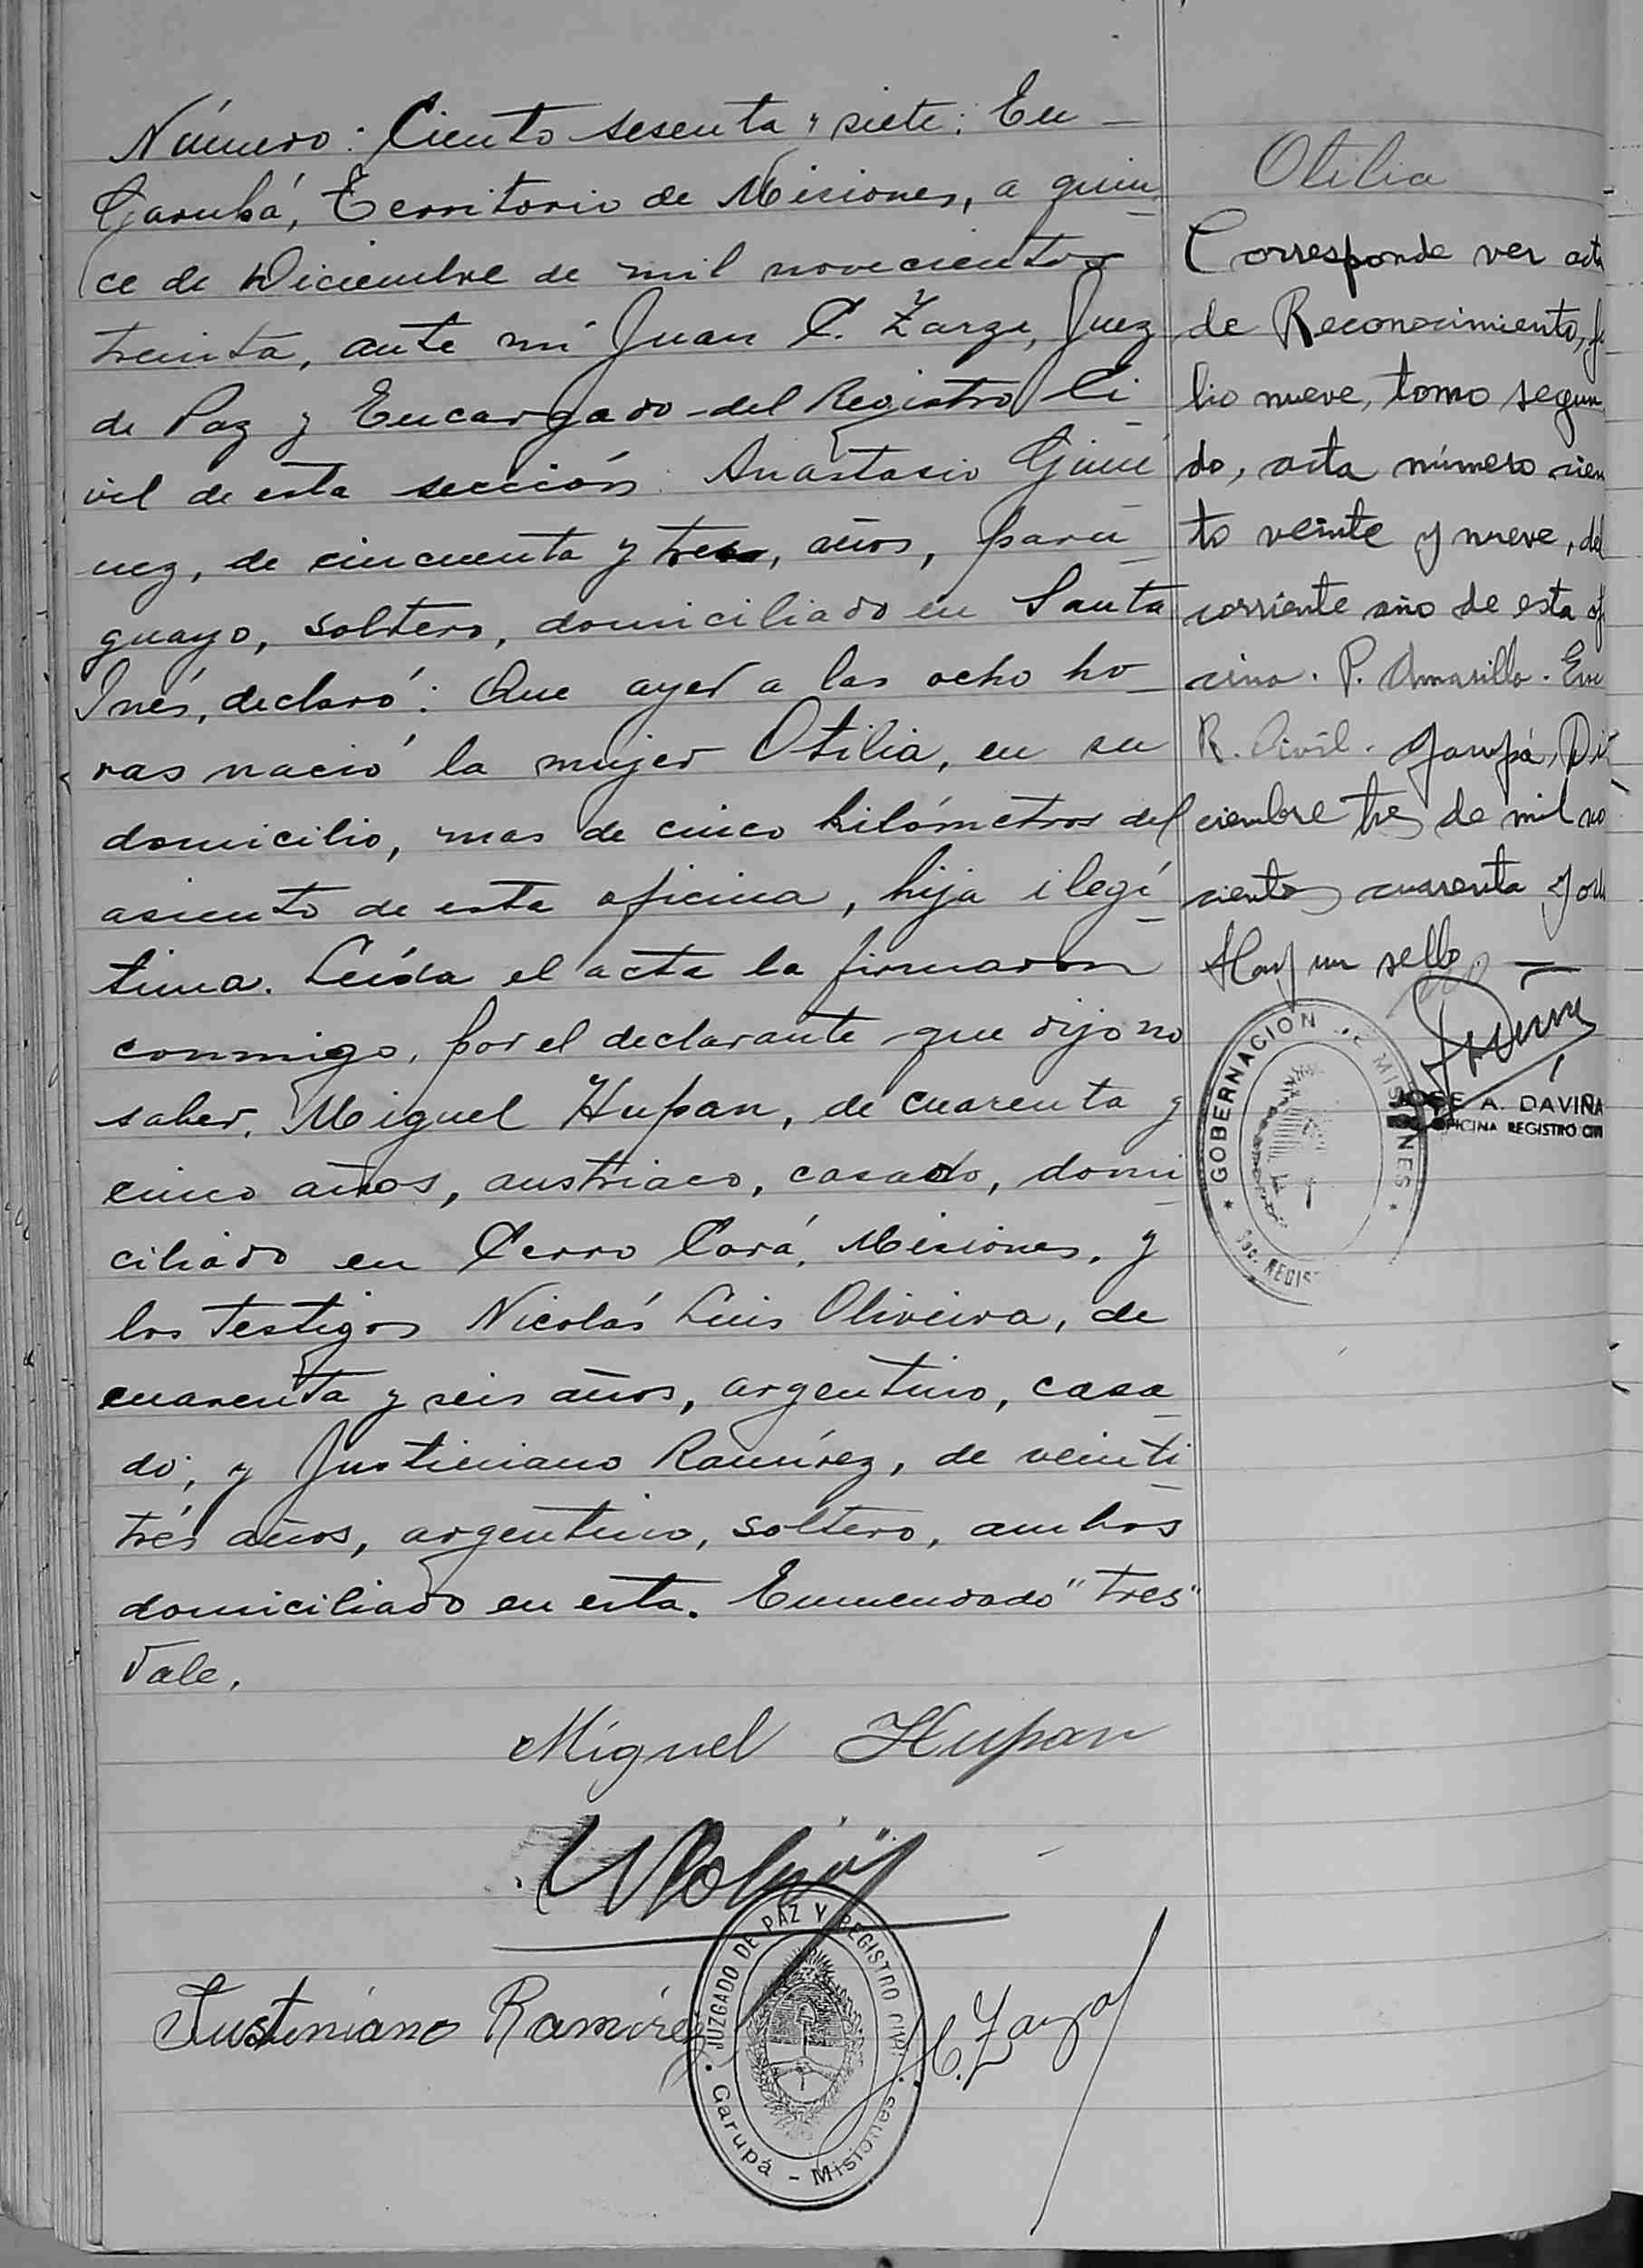 Número: Ciento sesenta y siete: En
Garupá, Territorio de Misiones, a quin
ce de Diciembre de mil novecientos
treinta, ante mí Juan C. Zarza, Juez
de Paz y Encargado del Registro Ci
vil de esta sección: Anastasio Gimé
nez, de cincuenta y tres, años, para
guayo, soltero, domiciliado en Santa
Inés, declaró: Que ayer a las ocho ho
ras nació la mujer Otilia, en su
domicilio, mas de cinco kilómetros del
asiento de esta oficina, hija ilegí
tima. Leída el acta la firmaron
conmigo, por el declarante que dijo no
saber, Miguel Hupan, de cuarenta y
cinco años, austriaco, casado, domi
ciliado en Cerro Corá, Misiones, y
los testigos Nicolás Luis Oliveira, de
cuarenta y seis años, argentino, casa
do; y Justiniano Ramírez, de veinti
trés años, argentino, soltero, ambos
domiciliado en esta. Enmendado "tres"
Vale.
Miguel Hupan
Justiniano Ramírez
C. Zarza
JUZGADO DE PAZ Y REGISTRO CIVIL
Garupá - Misiones
Otilia
Corresponde ver acta
de Reconocimiento, fo
lio nueve, tomo segun
do, acta número cien
to veinte y nueve, del
corriente año de esta of
icina. P. Amarilla. Enc
R. Civil. Garupá, Di
ciembre tres de mil no
cientos cuarenta y och
Hay un sello.
GOBERNACION DE MISIONES
REGIS
JOSE A. DAVIÑA
OFICINA REGISTRO CIVI